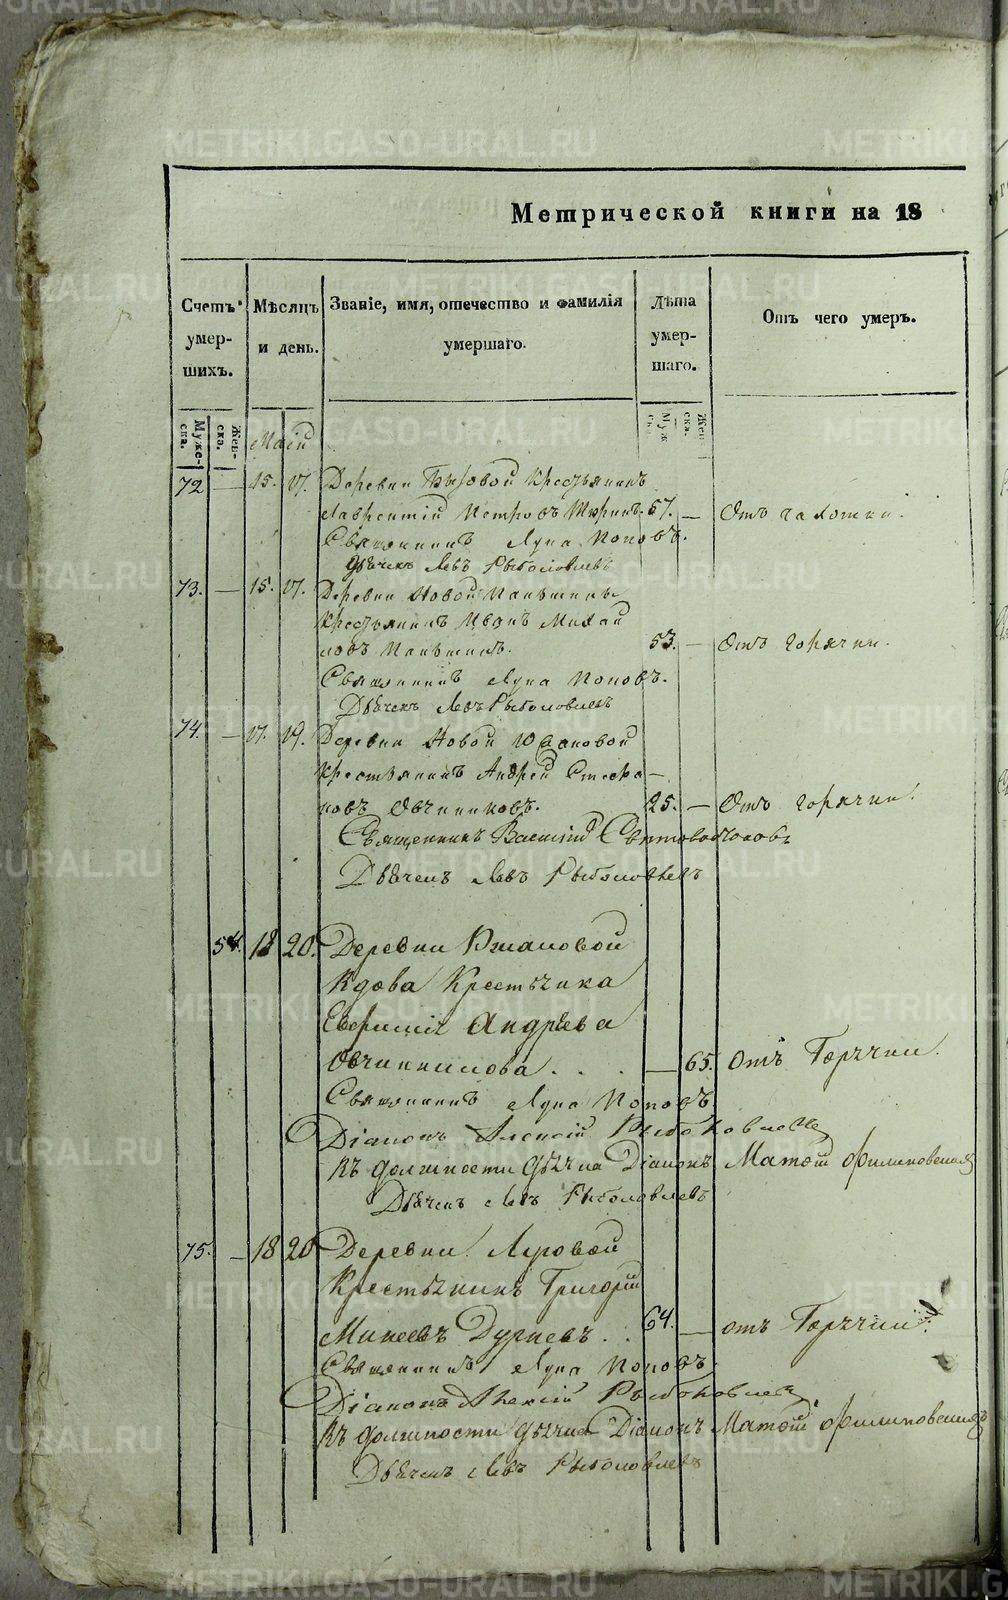 METRIKI.GASO-URAL.RU
Метрической книги на 18
Счетъ умер-шихъ.
Мѣсяцъ и день.
Званіе, имя, отечество и фамилія умершаго.
Лѣта умер-шаго.
Отъ чего умеръ.
Муже-ска.
Жен-ска.
Муж-ска.
Жен-ска.
Маій
72 — 15. 17. Деревни Крестьянинъ
Лаврентій Петровъ Тюринъ. 67. — Отъ чахотки.
Священникъ Лука Поповъ.
Дьячекъ Левъ Рыболовлевъ
73. — 15. 17. Деревни Новой
Крестьянинъ Иванъ Михай
ловъ 53. — Отъ горячки.
Священникъ Лука Поповъ.
Дьячекъ Левъ Рыболовлевъ
74. — 17. 19. Деревни Новой
Крестьянинъ Андрей Стефа—
новъ Овчинниковъ. 25. — Отъ горячки.
Священникъ Василій
Дьячекъ Левъ Рыболовлевъ
54. 18 20. Деревни
Вдова Крестьянка
Евфимія Андрѣева
Овчинникова . . . — 65. отъ Горячки.
Священникъ Лука Поповъ
Діаконъ Алексій Рыболовлевъ
Въ должности дьячка Діаконъ Матѳій Филиповскій
Дьячекъ Левъ Рыболовлевъ
75. — 18 20 Деревни
Крестьянинъ Григорій
Минеевъ . . 64. — отъ Горячки.
Священникъ Лука Поповъ.
Діаконъ Алексій Рыболовлевъ
Въ должности дьячка Діаконъ Матѳій Филиповскій
Дьячекъ Левъ Рыболовлевъ